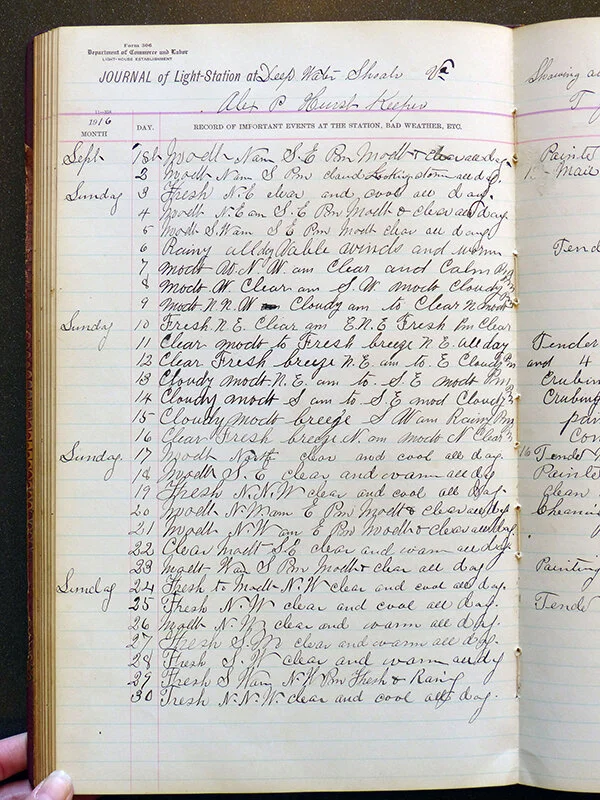 Form 306
Department of Commerce and Labor
LIGHT-HOUSE ESTABLISHMENT
JOURNAL of Light-Station at Deep Water Shoals Va
Alex P Hurst Keeper
1916
MONTH DAY. RECORD OF IMPORTANT EVENTS AT THE STATION, BAD WEATHER, ETC.
Sept 1st modt N am S.E Pm Modt & clear all day
2 modt N am S Pm cloudy looking storm all day.
Sunday 3 Fresh N.E clear and cool all day.
4 modt N.E am S.E Pm Modt & clear all day
5 modt S.W am S E Pm modt clear all day
6 Rainy all day vable winds and warm
7 modt W.N.W. am Clear and Calm Pm
8 modt W Clear am S.W. modt Cloudy Pm
9 modt N.N.W am Cloudy am to Clear N modt
Sunday 10 Fresh N.E. Clear am E.N.E Fresh Pm Clear
11 Clear modt to Fresh breeze N.E. all day
12 Clear Fresh breeze N.E. am to E Cloudy Pm
13 Cloudy modt N.E. am to S.E modt Pm
14 Cloudy modt S am to S.E mod Cloudy
15 Cloudy modt breeze S W am Rainy Pm
16 Clear Fresh breeze N. am modt N Clear
Sunday. 17 modt North clear and cool all day.
18 Modt S.E clear and warm all day
19 Fresh N.N.W clear and cool all day.
20 Modt N.W am E Pm Modt & clear all day
21 Modt N.W am E Pm Modt & clear all day
22 Clear Modt S.E clear and warm all day.
23 Modt W am S Pm Modt clear all day
Sunday 24 Fresh to Modt N.W clear and cool all day.
25 Fresh N.W clear and cool all day.
26 Modt N.W clear and warm all day.
27 Fresh S.W clear and warm all day.
28 Fresh S.W clear and warm all day
29 Fresh S W am N.W Pm Fresh & Rainy
30 Fresh N.N.W clear and cool all day.
Showing
Painte
1 Mail
Tend
Tender
and 4
Crubing
Crubing
16 Tender
Painte
Clean
Cleanin
Painting
Tende